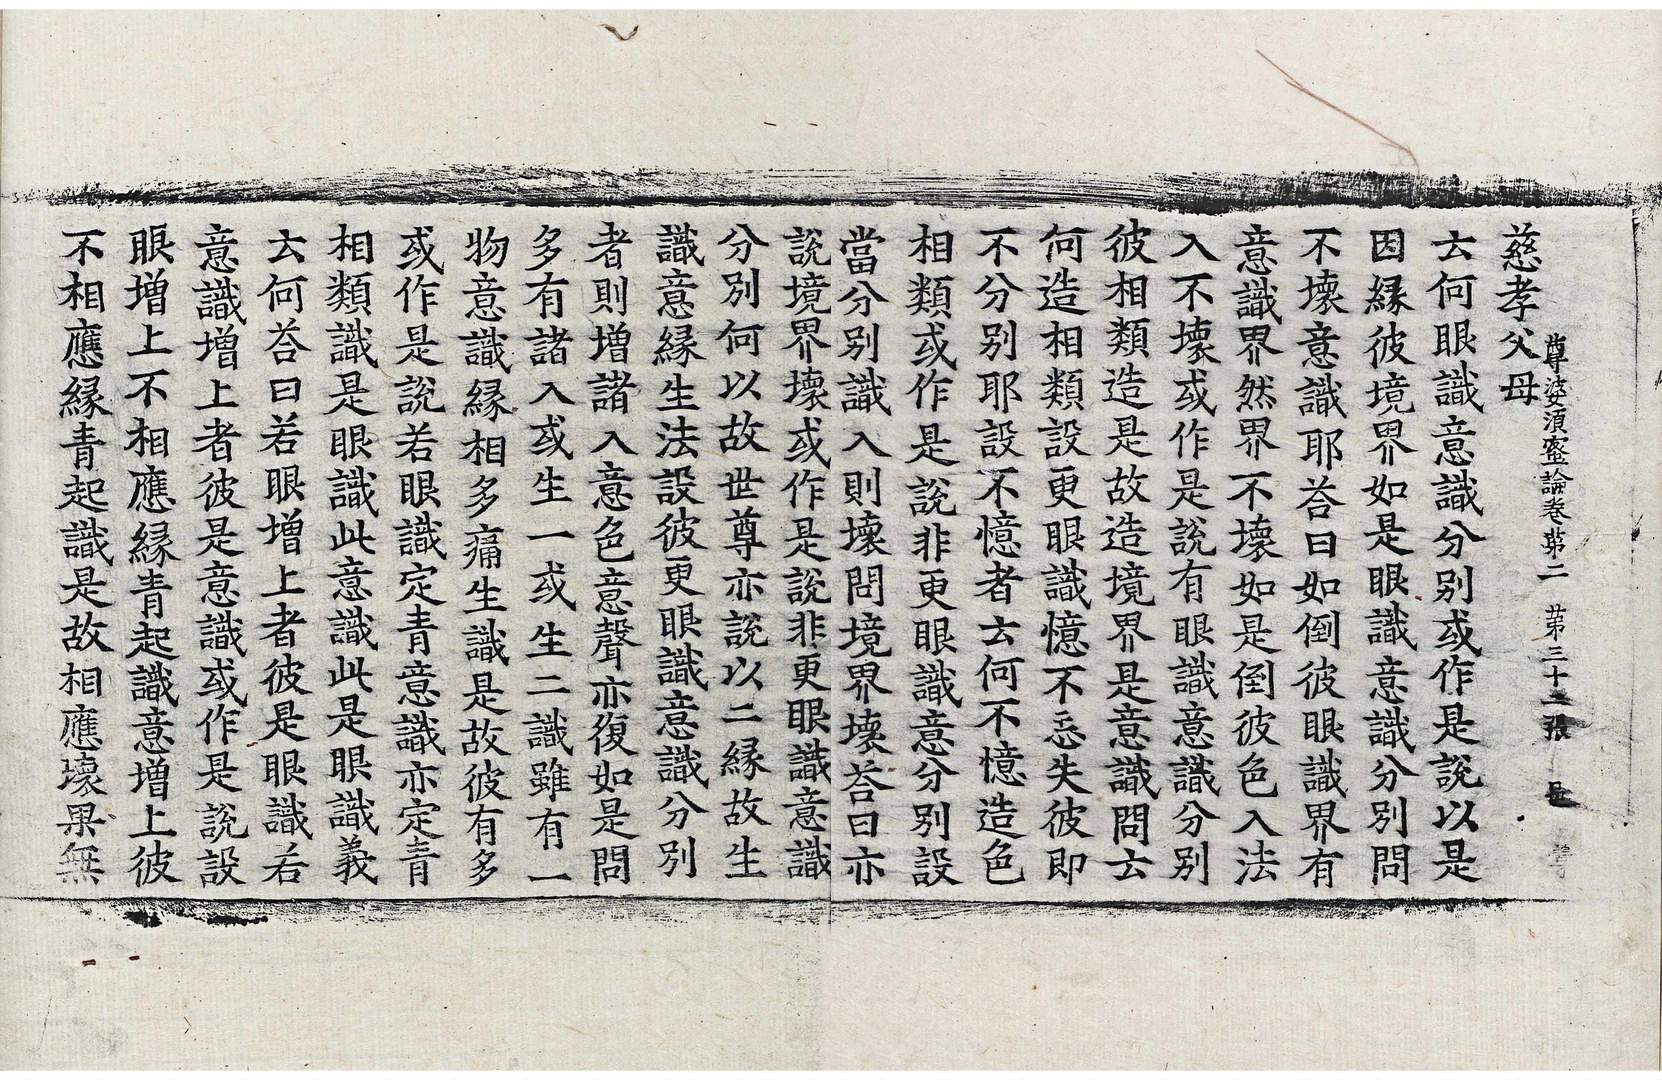 尊婆須蜜論卷第二 第三十二張
慈孝父母
去何眼識意識分別或作是說以是
因縁彼境界如是眼識意識分別問
不壞意識耶荅曰如倒彼眼識界有
意識界然界不壞如是倒彼色入法
入不壞或作是說有眼識意識分別
彼相類造是故造境界是意識問去
何造相類設更眼識憶不忘失彼即
不分別耶設不憶者去何不憶造色
相類或作是說非更眼識意分別設
當分別識入則壞問境界壞荅曰亦
說境界壞或作是說非更眼識意識
分別何以故世尊亦說以二縁故生
識意縁生法設彼更眼識意識分別
者則增諸入意色意聲亦復如是問
多有諸入或生一或生二識雖有一
物意識縁相多痛生識是故彼有多
或作是說若眼識定青意識亦定青
相類識是眼識此意識此是眼識義
去何荅曰若眼增上者彼是眼識若
意識增上者彼是意識或作是說設
眼增上不相應縁青起識意增上彼
不相應縁青起識是故相應壞果無